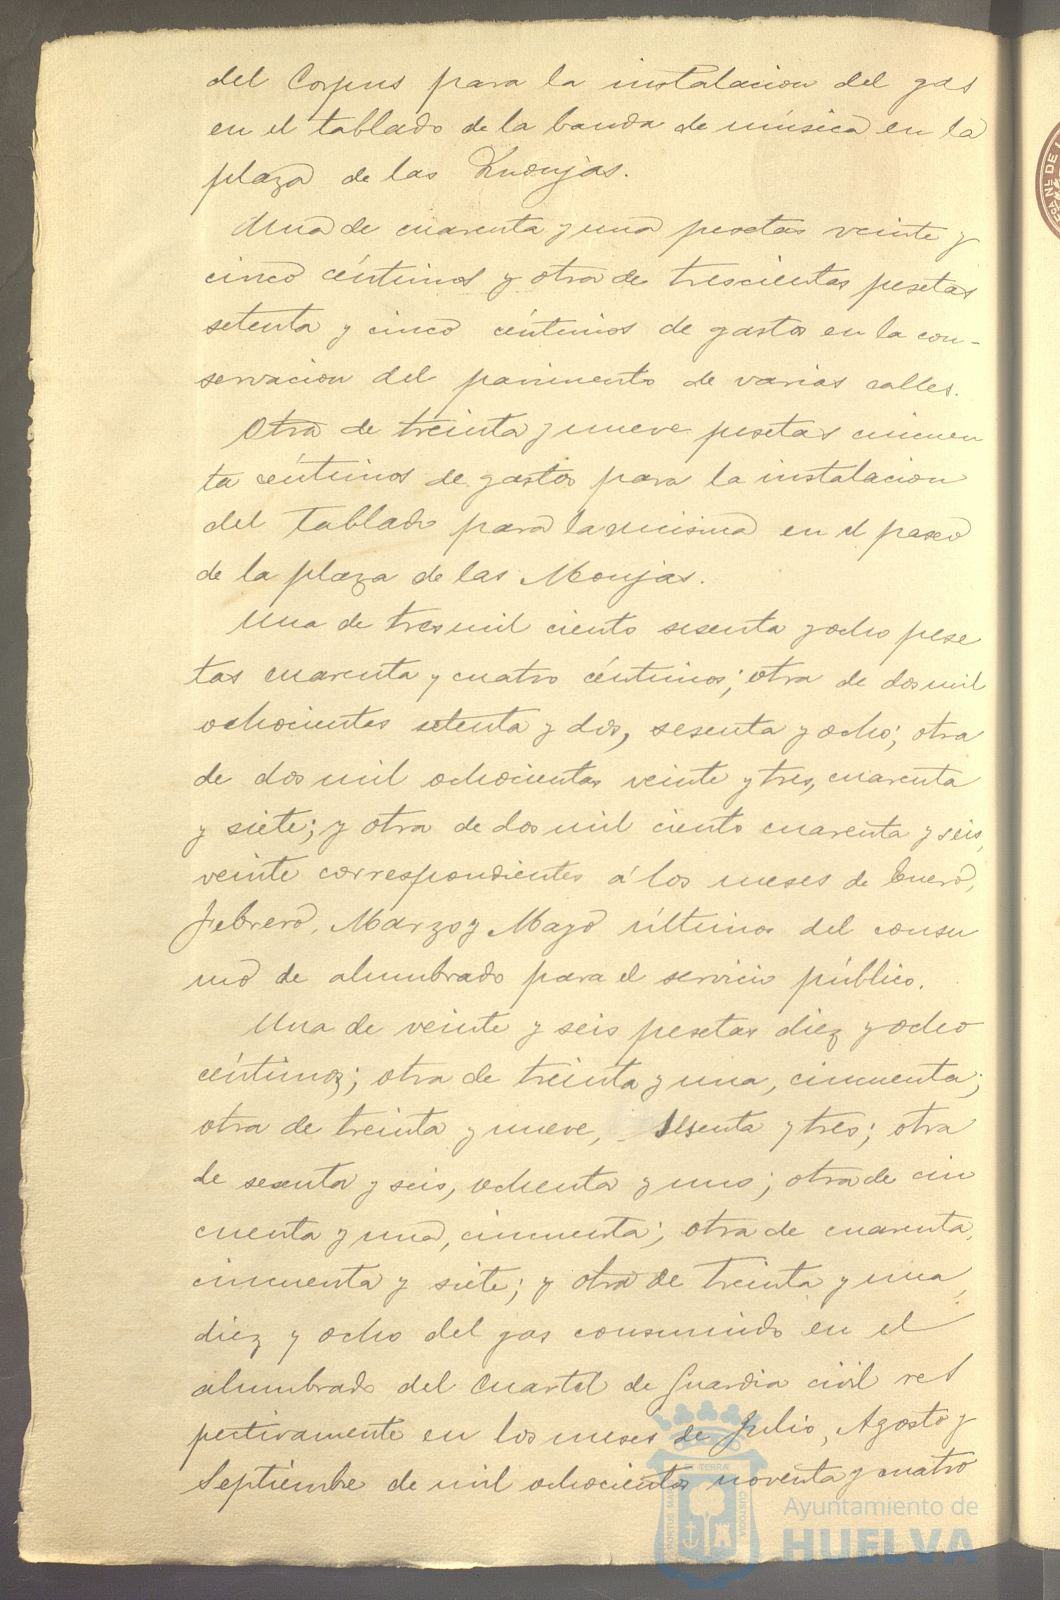 del Corpus para la instalacion del gas
en el tablado de la banda de música en la
plaza de las Monjas.
Una de cuarenta y una pesetas veinte y
cinco céntimos y otra de trescientas pesetas
setenta y cinco céntimos de gastos en la con-
servacion del pavimento de varias calles.
Otra de treinta y nueve pesetas cincuen
ta céntimos de gastos para la instalacion
del tablado para la misma en el paseo
de la plaza de las Monjas.
Una de tres mil ciento sesenta y ocho pese
tas cuarenta y cuatro céntimos; otra de dos mil
ochocientas setenta y dos, sesenta y ocho; otra
de dos mil ochocientas veinte y tres, cuarenta
y siete; y otra de dos mil ciento cuarenta y seis,
veinte correspondientes á los meses de Enero,
Febrero, Marzo y Mayo últimos del consu
mo de alumbrado para el servicio público.
Una de veinte y seis pesetas diez y ocho
céntimos; otra de treinta y una, cincuenta;
otra de treinta y nueve, sesenta y tres; otra
de sesenta y seis, ochenta y uno; otra de cin
cuenta y una, cincuenta; otra de cuarenta,
cincuenta y siete; y otra de treinta y una,
diez y ocho del gas consumido en el
alumbrado del Cuartel de Guardia civil res
pectivamente en los meses de Julio, Agosto y
Septiembre de mil ochocientos noventa y cuatro
Ayuntamiento de
HUELVA
PORTUS MARIS ET TERRÆ CUSTODIA